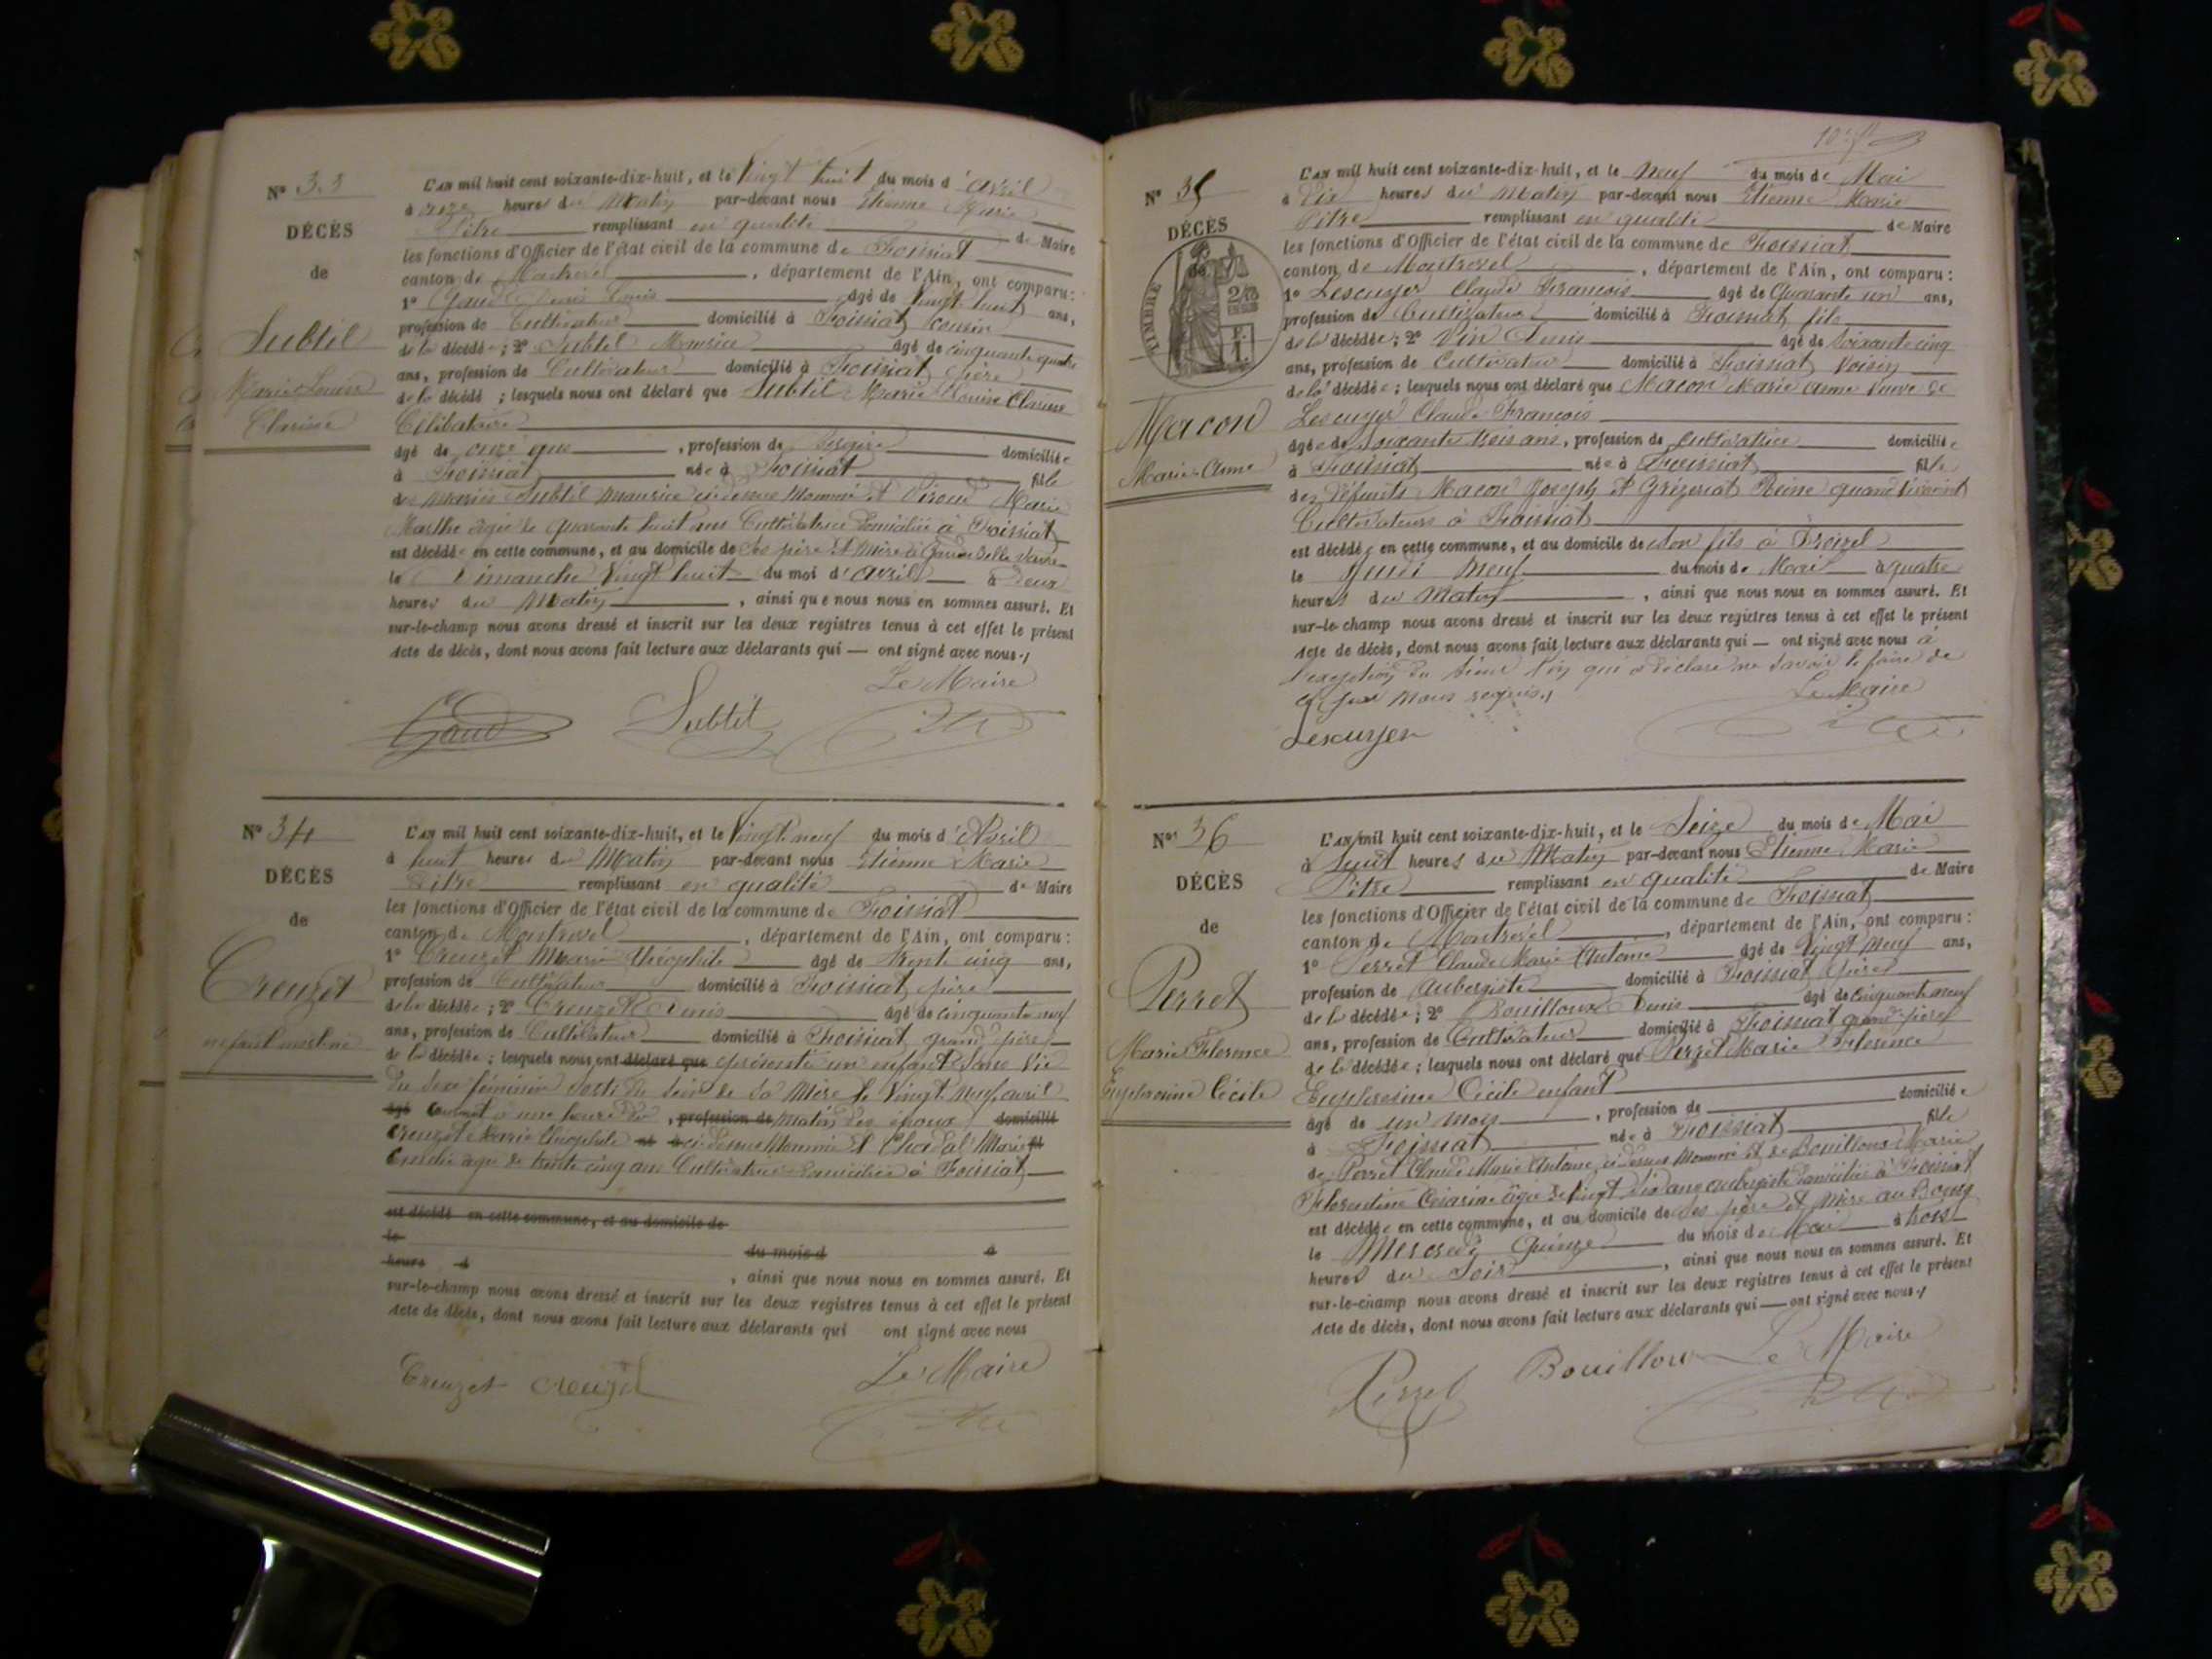 N° 33
DÉCÈS
de
Subtil
Marie Louise
Clarisse
L'an mil huit cent soixante-dix-huit, et le Vingt huit du mois d'avril
à onze heures du Matin par-devant nous Etienne Marie
Pitre remplissant en qualité de Maire
les fonctions d'Officier de l'état civil de la commune de Foissiat
canton de Montrevel, département de l'Ain, ont comparu :
1° Gaud Denis Louis âgé de Vingt huit ans,
profession de Cultivateur domicilié à Foissiat cousin
de la décédée ; 2° Subtil Maurice âgé de cinquante quatre
ans, profession de Cultivateur domicilié à Foissiat père
de la décédé ; lesquels nous ont déclaré que Subtil Marie Louise Clarisse
Célibataire
âgé de onze ans, profession de domiciliée
à Foissiat née à Foissiat fille
de Mariés Subtil Maurice ci-dessus Nommé et Marie
Marthe âgée de quarante huit ans Cultivatrice domiciliée à Foissiat
est décédée en cette commune, et au domicile de ses père et Mère à
le Dimanche Vingt huit du moi d'avril à Deux
heures du Matin, ainsi que nous nous en sommes assuré. Et
sur-le-champ nous avons dressé et inscrit sur les deux registres tenus à cet effet le présent
Acte de décès, dont nous avons fait lecture aux déclarants qui — ont signé avec nous./
Le Maire
Gaud Subtil
N° 34
DÉCÈS
de
Creuzet
enfant mort-né
L'an mil huit cent soixante-dix-huit, et le Vingt neuf du mois d'Avril
à huit heures du Matin par-devant nous Etienne Marie
Pitre remplissant en qualité de Maire
les fonctions d'Officier de l'état civil de la commune de Foissiat
canton de Montrevel, département de l'Ain, ont comparu :
1° Creuzet Marie Théophile âgé de trente cinq ans,
profession de Cultivateur domicilié à Foissiat père
de la décédée ; 2° Creuzet Denis âgé de cinquante neuf
ans, profession de Cultivateur domicilié à Foissiat grand père
de la décédée ; lesquels nous ont déclaré que présenté un enfant Sans Vie
du Sexe féminin Sorti du Sein de Sa Mère le Vingt Neuf avril
âgé courant à une heure du, profession de matin des époux domicilié
Creuzet Marie Théophile né ci-dessus Nommé et Chadal Marie fil
âgée de trente cinq ans Cultivatrice domiciliée à Foissiat
est décédé en cette commune, et au domicile de
le du mois d à
heure d, ainsi que nous nous en sommes assuré. Et
sur-le-champ nous avons dressé et inscrit sur les deux registres tenus à cet effet le présent
Acte de décès, dont nous avons fait lecture aux déclarants qui ont signé avec nous
Creuzet Creuzet Le Maire
N° 35
DÉCÈS
de
TIMBRE
Macon
Marie-Anne
L'an mil huit cent soixante-dix-huit, et le Neuf du mois de Mai
à Dix heures du Matin par-devant nous Etienne Marie
Pitre remplissant en qualité de Maire
les fonctions d'Officier de l'état civil de la commune de Foissiat
canton de Montrevel, département de l'Ain, ont comparu :
1° Lescuyer Claude François âgé de Quarante un ans,
profession de Cultivateur domicilié à Foissiat fils
de la décédée ; 2° Vin Denis âgé de Soixante cinq
ans, profession de Cultivateur domicilié à Foissiat Voisin
de la décédée ; lesquels nous ont déclaré que Macon Marie Anne Veuve de
Lescuyer Claude François
âgée de Soixante trois ans, profession de Cultivatrice domiciliée
à Foissiat née à Foissiat fille
des Défunts Macon Joseph et Grézeriat Reine quand vivaient
Cultivateurs à Foissiat
est décédée en cette commune, et au domicile de Son fils à
le Jeudi Neuf du mois de Mai à quatre
heures du Matin, ainsi que nous nous en sommes assuré. Et
sur-le-champ nous avons dressé et inscrit sur les deux registres tenus à cet effet le présent
Acte de décès, dont nous avons fait lecture aux déclarants qui — ont signé avec nous à
l'exception du Sieur Vin qui a déclaré ne Savoir le faire de
ce par nous requis./
Le Maire
Lescuyer
N° 36
DÉCÈS
de
Perret
Marie Florence
Euphrosine Cécile
L'an mil huit cent soixante-dix-huit, et le Seize du mois de Mai
à huit heures du Matin par-devant nous Etienne Marie
Pitre remplissant en qualité de Maire
les fonctions d'Officier de l'état civil de la commune de Foissiat
canton de Montrevel, département de l'Ain, ont comparu :
1° Perret Claude Marie Antoine âgé de Vingt Neuf ans,
profession de Aubergiste domicilié à Foissiat père
de la décédée ; 2° Bouilloux Denis âgé de cinquante neuf
ans, profession de Cultivateur domicilié à Foissiat grand-père
de la décédée ; lesquels nous ont déclaré que Perret Marie Florence
Euphrosine Cécile enfant
âgé de un mois, profession de domiciliée
à Foissiat née à Foissiat fille
de Perret Claude Marie Antoine ci-dessus Nommé et de Bouilloux Marie
Florentine Césarine âgée de Vingt Six ans aubergiste domiciliés à Foissiat
est décédée en cette commune, et au domicile de Ses père et Mère au Bourg
le Mercredi Quinze du mois de Mai à trois
heures du Soir, ainsi que nous nous en sommes assuré. Et
sur-le-champ nous avons dressé et inscrit sur les deux registres tenus à cet effet le présent
Acte de décès, dont nous avons fait lecture aux déclarants qui — ont signé avec nous./
Perret Bouilloux Le Maire